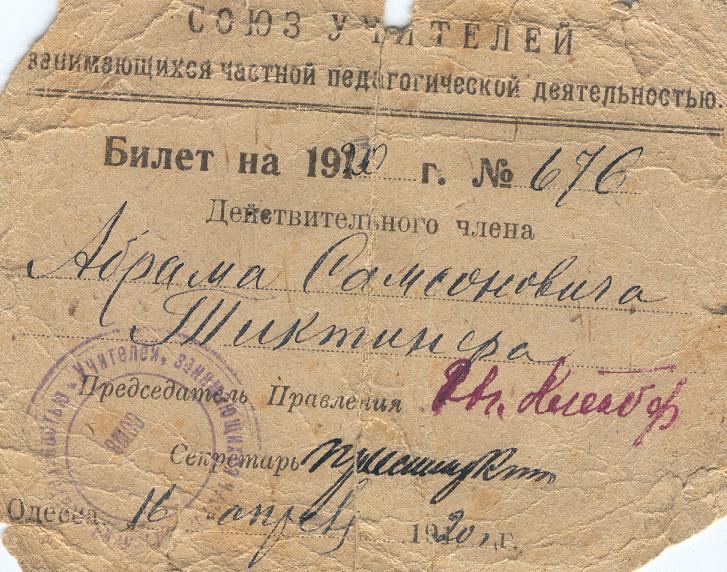 СОЮЗ УЧИТЕЛЕЙ
занимающихся частной педагогической деятельностью.
Билет на 1920 г. № 676
Действительного члена
Абрама Самсоновича
Тиктинера
Председатель Правления
Секретарь
Одесса 16 апреля 1920 г.
Учителей, занимающихся
СОЮЗ